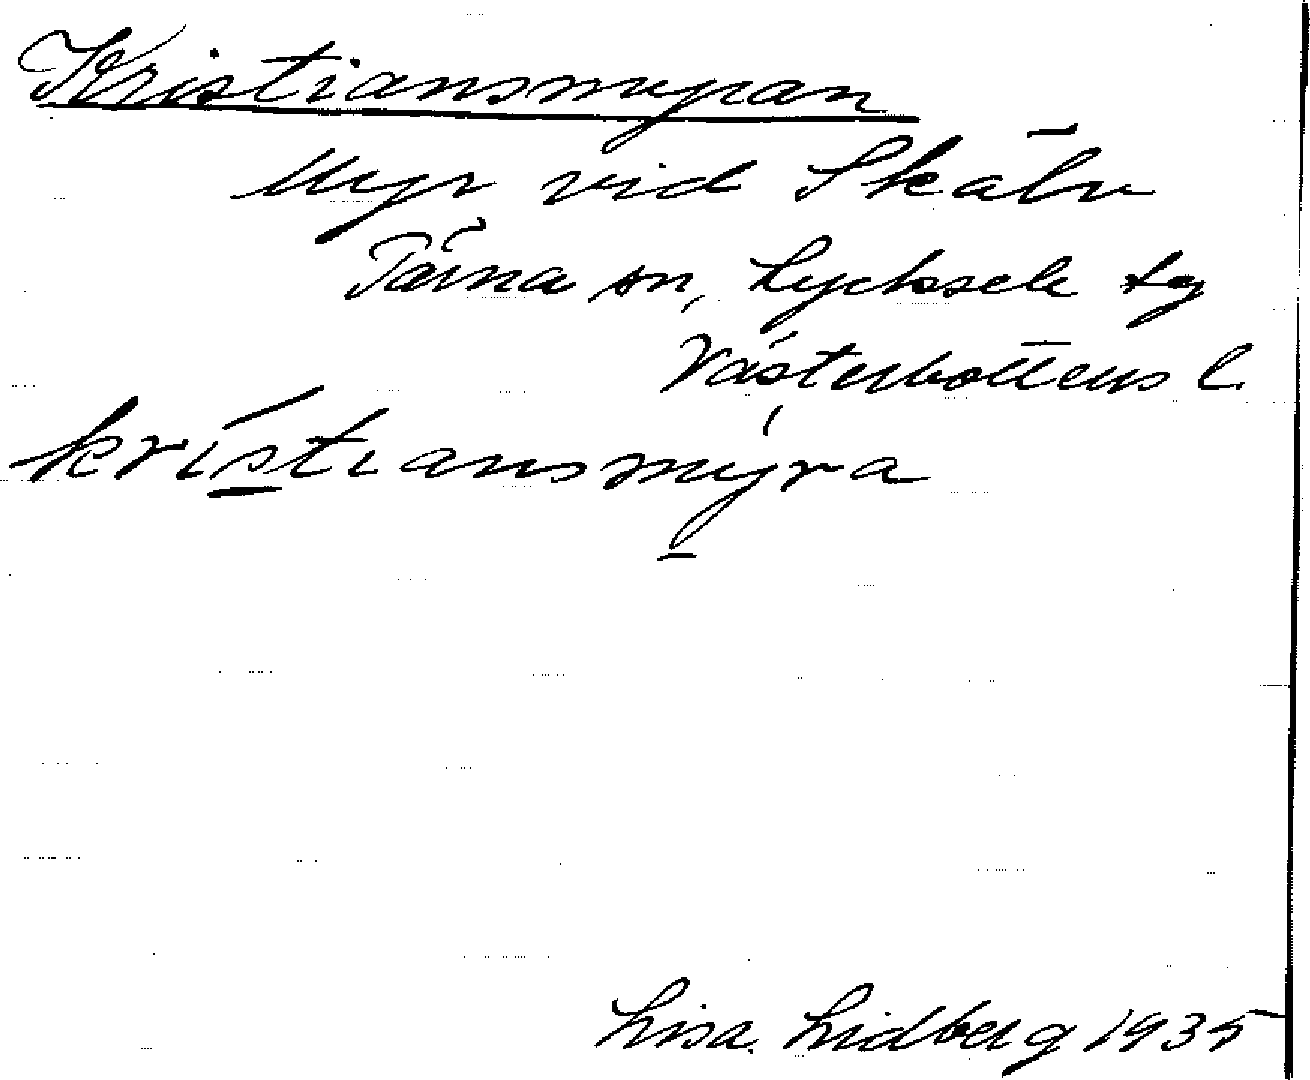 Kristiansmyran
Myr vid
Tärna sn, Lycksele tg
Västerbottens l.
kristiansmyra
Lisa Lidberg 1935